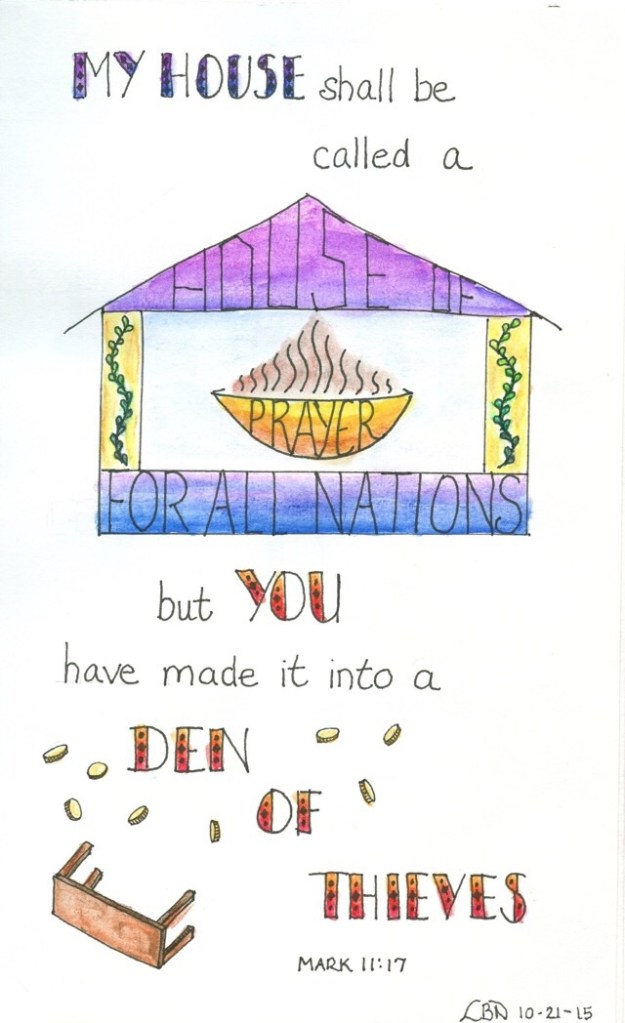 MY HOUSE shall be
called a
HOUSE OF
PRAYER
FOR ALL NATIONS
but YOU
have made it into a
DEN
OF
THIEVES
MARK 11:17
LBN 10-21-15